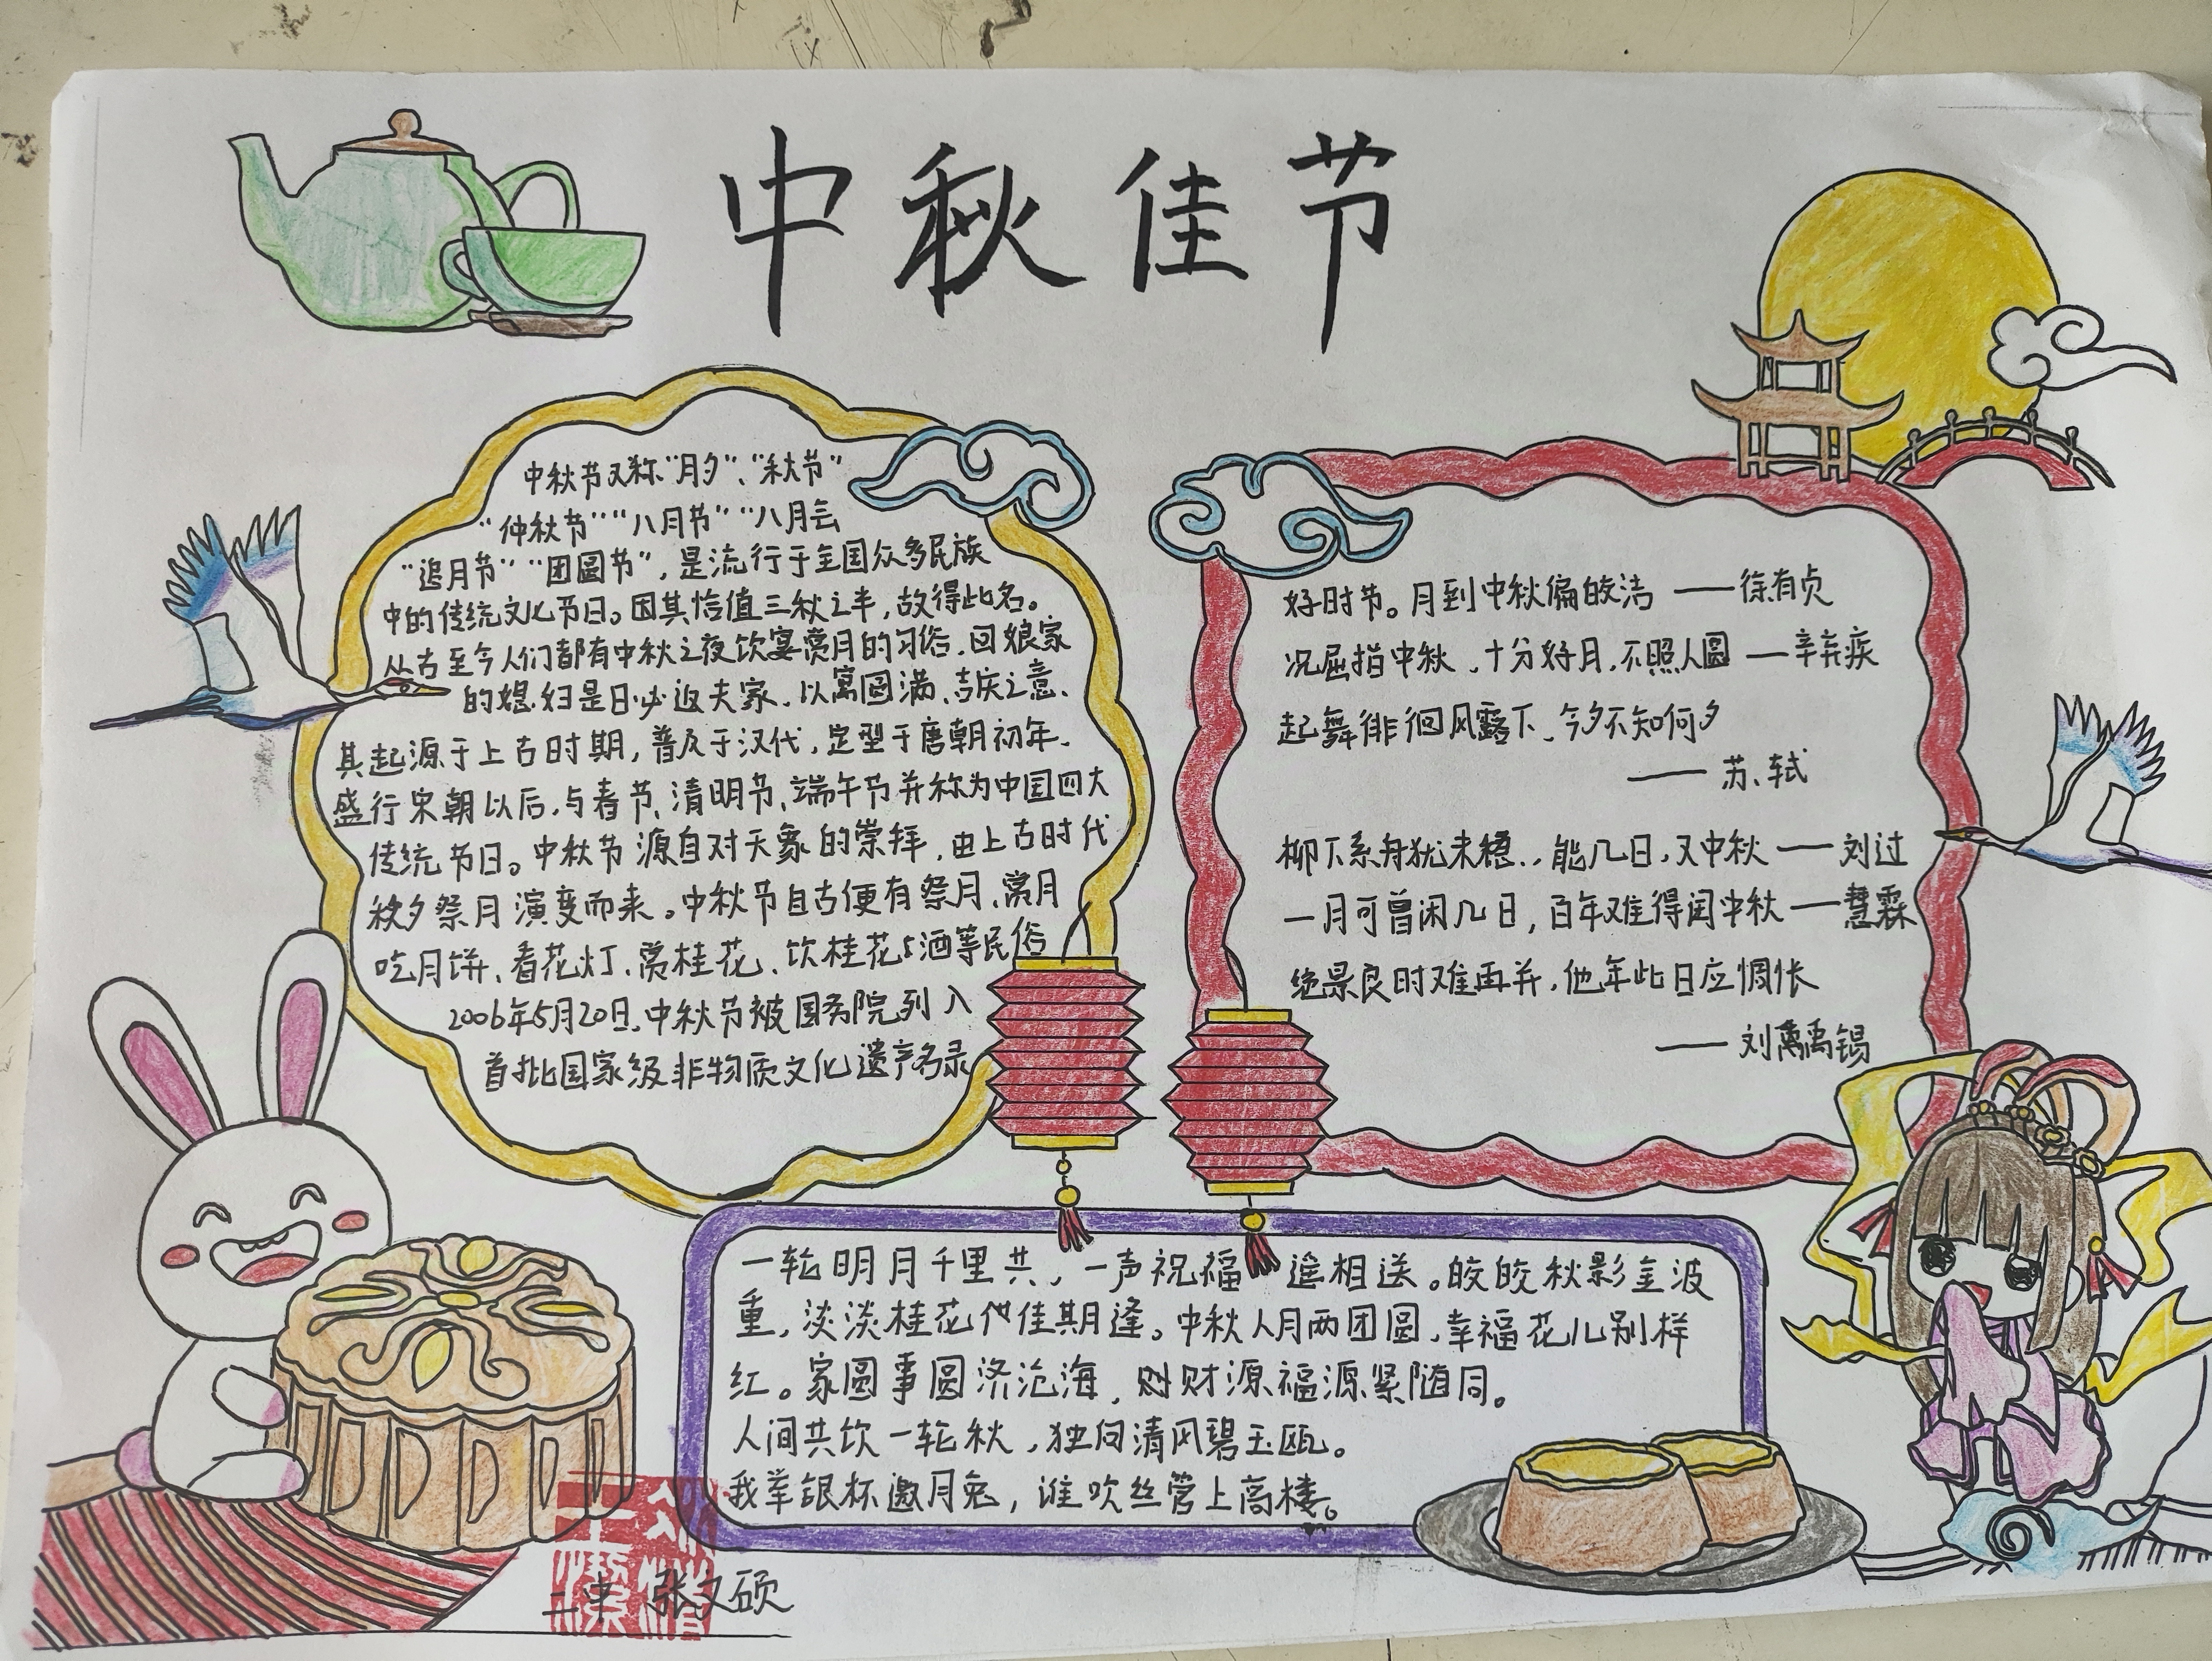 中秋佳节
中秋节又称"月夕"、"秋节"
"仲秋节""八月节""八月会
"追月节""团圆节",是流行于全国众多民族
中的传统文化节日。因其恰值三秋之半,故得此名。
从古至今人们都有中秋之夜饮宴赏月的习俗,回娘家
的媳妇是日必返夫家,以寓圆满、吉庆之意、
其起源于上古时期,普及于汉代,定型于唐朝初年、
盛行宋朝以后,与春节、清明节、端午节并称为中国四大
传统节日。中秋节源自对天象的崇拜,由上古时代
秋夕祭月演变而来。中秋节自古便有祭月、赏月
吃月饼、看花灯、赏桂花、饮桂花酒等民俗
2006年5月20日、中秋节被国务院列入
首批国家级非物质文化遗产名录
好时节。月到中秋偏皎洁 ——徐有贞
况屈指中秋,十分好月,不照人圆 ——辛弃疾
起舞徘徊风露下、今夕不知何夕
—— 苏轼
柳下系舟犹未稳..能几日,又中秋 —— 刘过
一月可曾闲几日,百年难得闰中秋 ——慧霖
绝景良时难再并,他年此日应惆怅
—— 刘禹锡
一轮明月千里共,一声祝福遥相送。皎皎秋影金波
重,淡淡桂花伴佳期逢。中秋人月两团圆,幸福花儿别样
红。家圆事圆济沧海,财源福源紧随同。
人间共饮一轮秋,独向清风碧玉瓯。
我举银杯邀月兔,谁吹丝管上高楼。
二中 张文硕